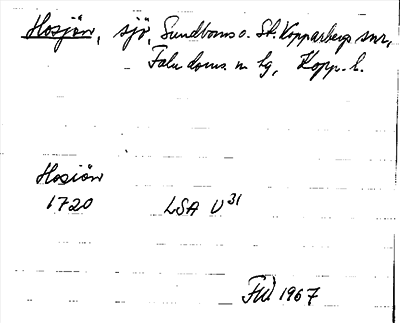 Hosjön, sjö, Sundborns o. St. Kopparbergs snr,
Falu doms. n. lg, Kopp. l.
Hosiön
1720 LSA U 31
FW 1967